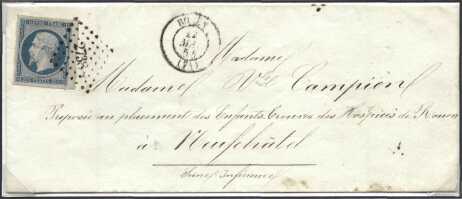 REPUB. FRANC.
ROUEN
22
54
(74)
Madame
Madame Vve Campion
Préposée au placement des Enfants Trouvés des Hospices de Rouen
à Neufchâtel
Seine Inférieure